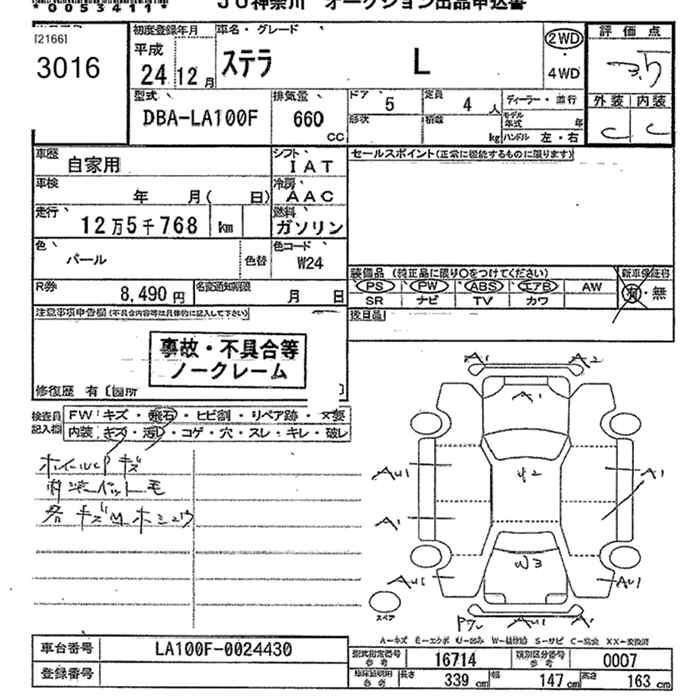 *0053411*
JU神奈川 オークション出品申込書
[2166]
3016
初度登録年月
平成
24 12月
車名・グレード
ステラ L
2WD
・
4WD
評価点
3.5
外装 内装
C C
型式
DBA-LA100F
排気量
660
CC
ドア 5
定員 4 人
形状
積載 kg
ディーラー・並行
モデル年式 年
ハンドル 左・右
車歴
自家用
シフト
IAT
車検
年 月( 日)
冷房
AAC
走行
12万5千768 km
燃料
ガソリン
色
パール
色替
色コード
W24
R券
8,490円
名変通知期限
月 日
セールスポイント(正常に機能するものに限ります)
装備品 (純正品に限り○をつけてください)
新車保証書
PS PW ABS エアB AW
有・無
SR ナビ TV カワ
後日品
注意事項申告欄(不具合内容等は具体的に記入して下さい)
事故・不具合等
ノークレーム
修復歴 有〔箇所 〕
検査員
記入欄
FW:キズ・飛石・ヒビ割・リペア跡・×要
内装:キズ・汚レ・コゲ・穴・スレ・キレ・破レ
ホイールCPキズ
各キズ
A1 A2
A1
AU1 A1
A1
U2
W3
AU1 AU1
AU1 A1
スペア
A-キズ E-エクボ U-凹ミ W-補修跡 S-サビ C-腐食 XX-交換済
車台番号 LA100F-0024430
登録番号
型式指定番号
参考
16714
類別区分番号
参考
0007
長さ 339 cm
幅 147 cm
高さ 163 cm